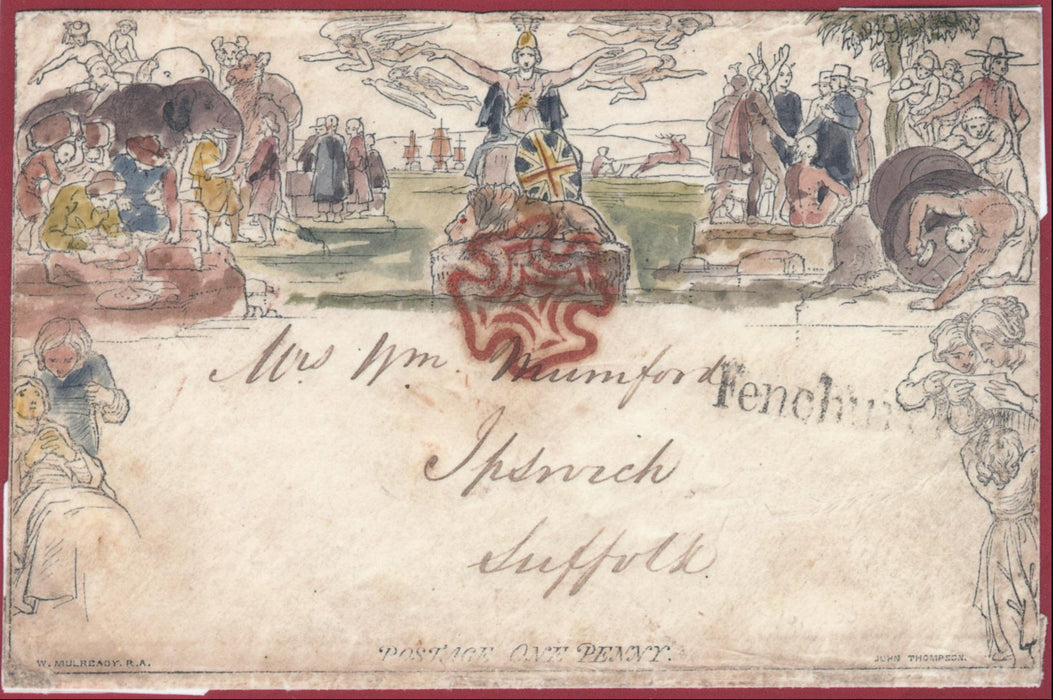 Mrs Wm. Mumford
Ipswich
Suffolk
POSTAGE ONE PENNY.
W. MULREADY. R.A.
JOHN THOMPSON.